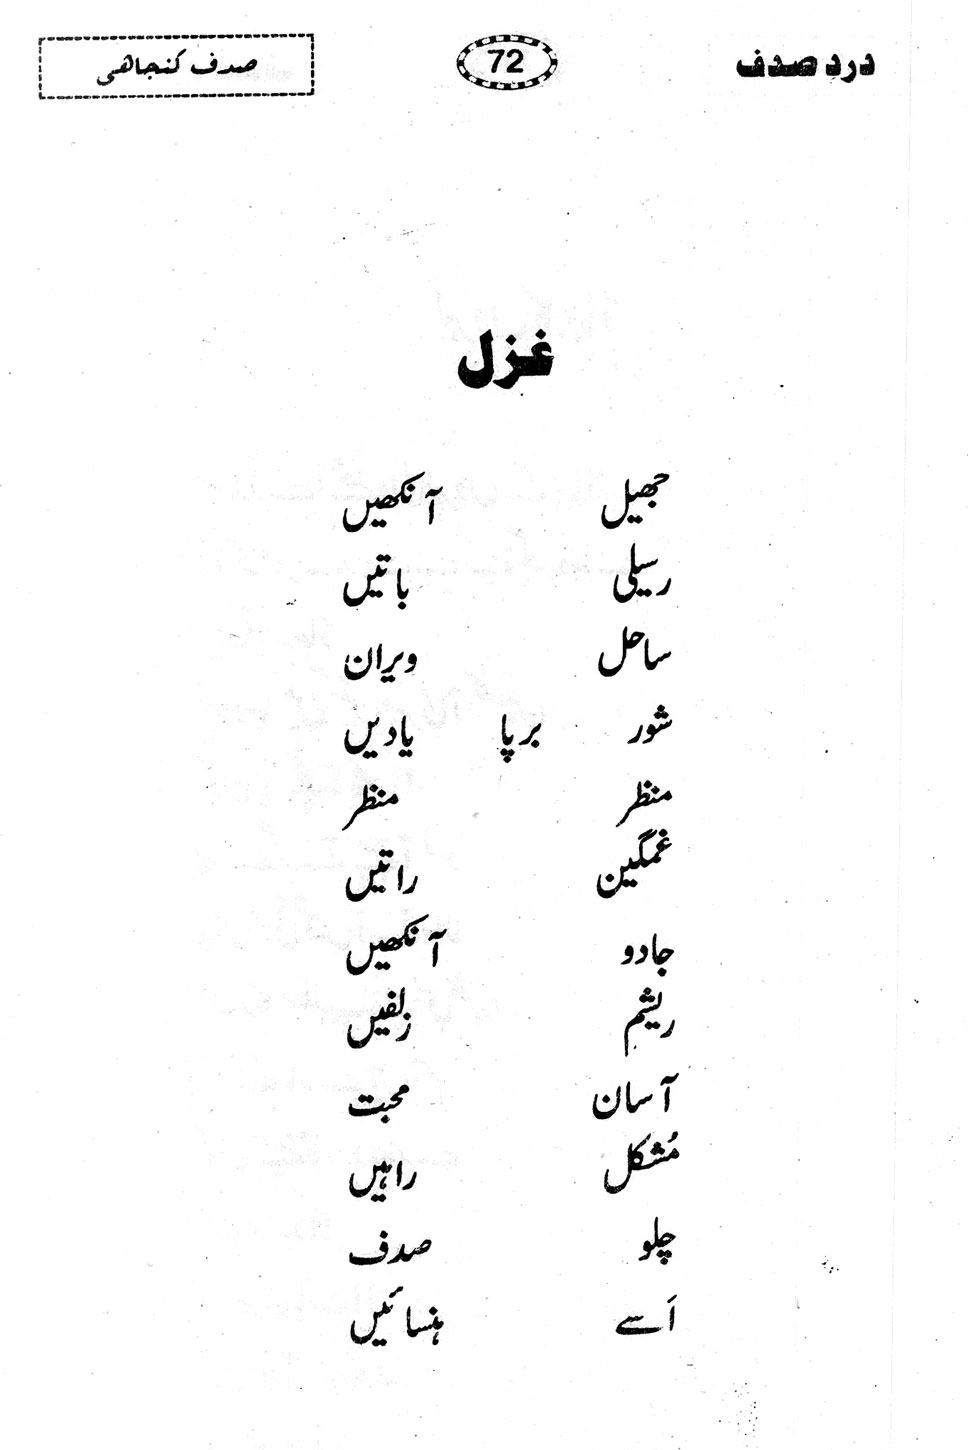 درد صدف 72 صدف کنجاهی
غزل
جھیل آنکھیں
رسیلی باتیں
ساحل ویران
شور برپا یادیں
منظر منظر
غمگین راتیں
جادو آنکھیں
ریشم زلفیں
آسان محبت
مُشکل راہیں
چلو صدف
اَسے ہنسائیں